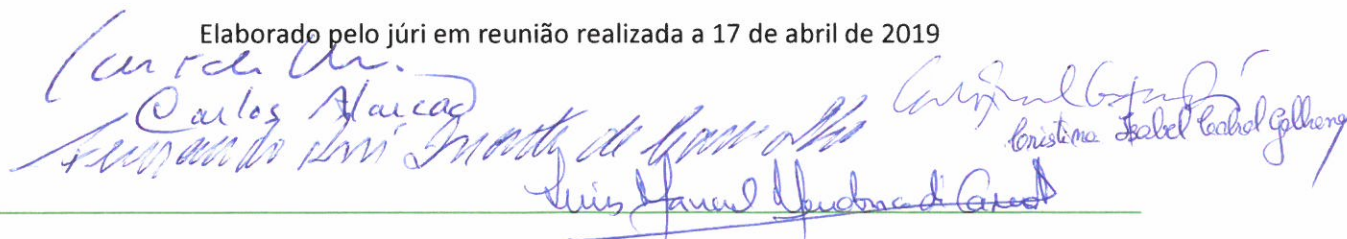 Elaborado pelo júri em reunião realizada a 17 de abril de 2019
Carlos Alarcão
Fernando Luís Duarte de Carvalho
Cristina Isabel Cabral Galhano
Luis Manuel Mendonça de